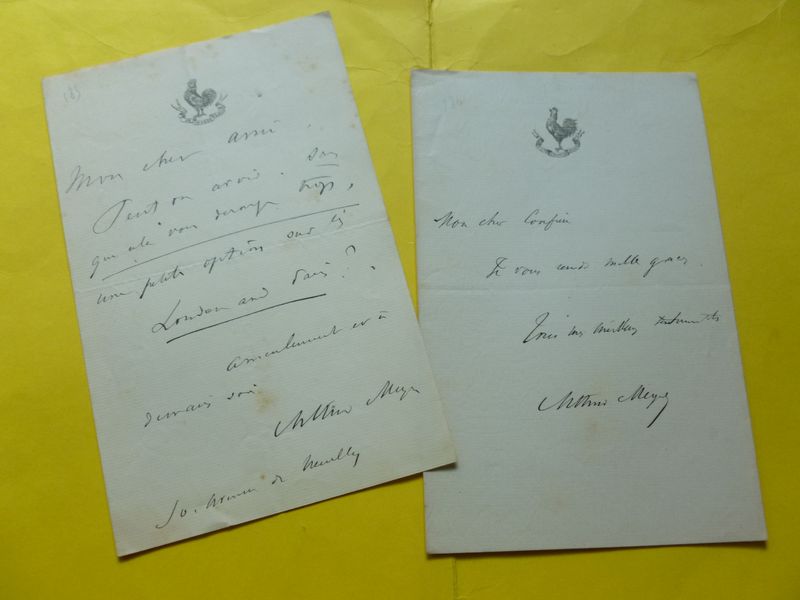 185
Mon cher ami,
Peut on avoir. sans
que cela vous dérange trop,
une petite option sur les
London and Paris?
amicalement et à
demain soir
Arthur Meyer
50. Avenue de Neuilly
Mon cher Confrère
Je vous rends mille graces.
Tous mes meilleurs sentiments
Arthur Meyer